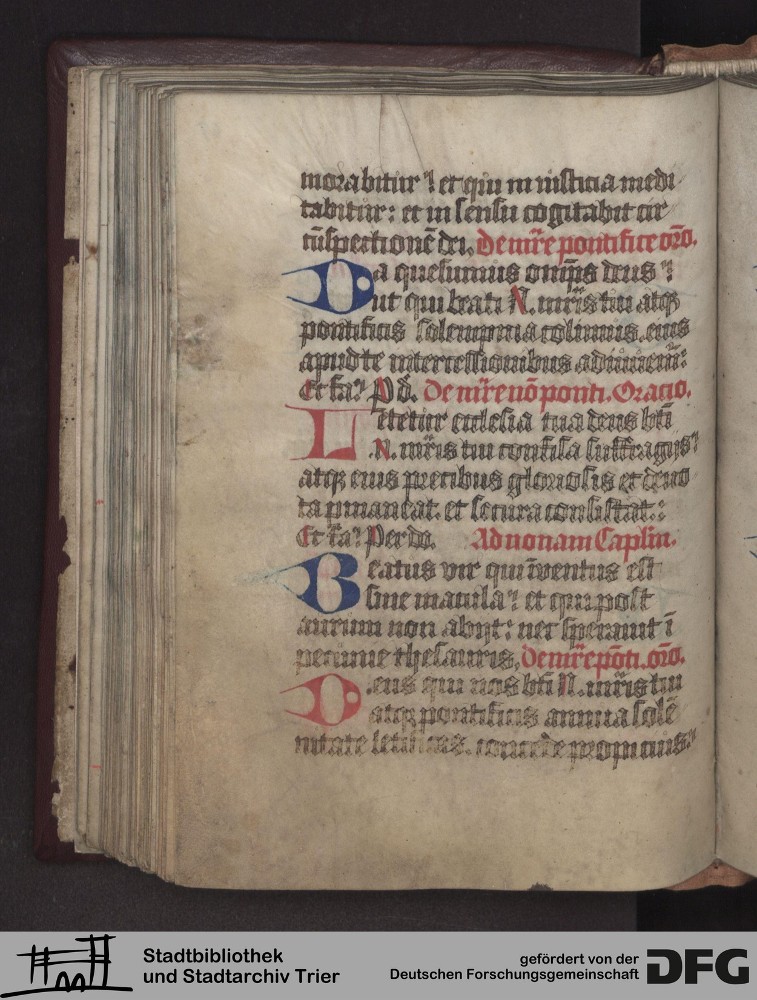 morabitur et qui in iusticia medi
tabitur: et in sensu cogitabit cir
cūspectionē dei. De mr̄e pontifice or̄o.
Da quesumus omp̄s deus
ut qui beati N. mr̄is tui atqꝫ
pontificis solempnia colimus. eius
apud te intercessionibus adiuuem̄:
Et fa. P d. De mr̄e nō ponti. Oracio.
Letetur ecclesia tua deus bt̄i
.N. mr̄is tui confisa suffragijs
atqꝫ eius precibus gloriosis et deuo
ta pmaneat. et secura consistat:
Et fa. Per do. Ad nonam Capl'm.
Beatus vir qui īuentus est
sine macula et qui post
aurum non abijt: nec sperauit ī
pecunie thesauris. De mr̄e pōti. or̄o.
Deus qui nos bt̄i N. mr̄is tui
atqꝫ pontificis annua solē
nitate letificas. concede propicius.
Stadtbibliothek
und Stadtarchiv Trier
gefördert von der
Deutschen Forschungsgemeinschaft
DFG